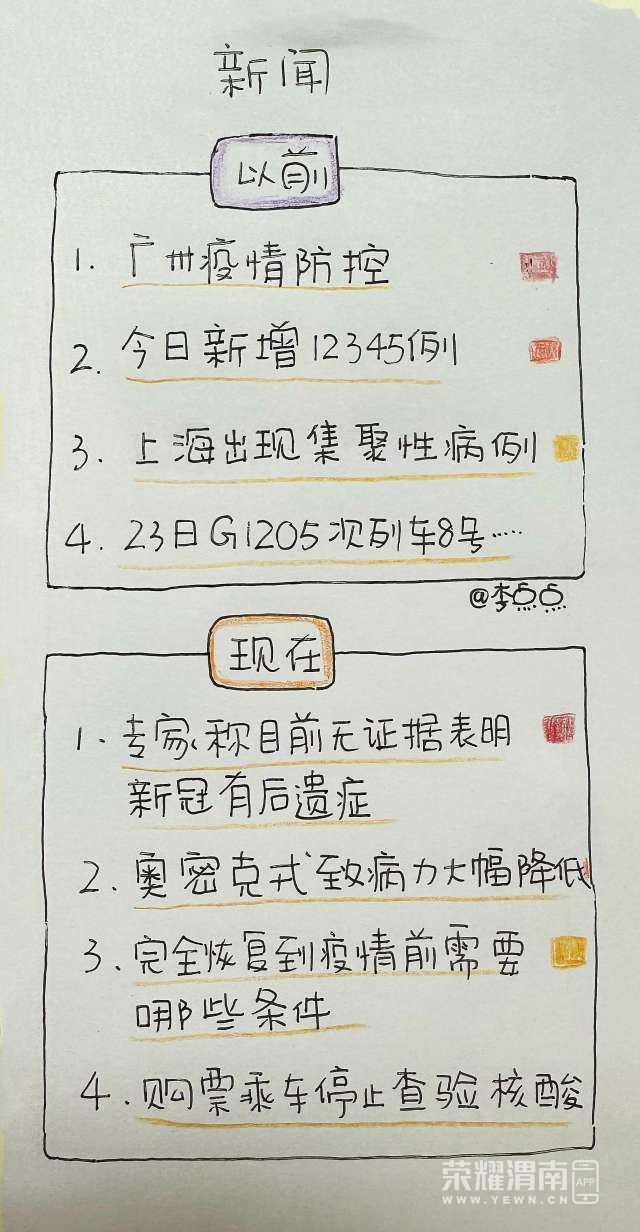 新闻
以前
1. 广州疫情防控
2. 今日新增12345例
3. 上海出现集聚性病例
4. 23日G1205次列车8号……
@李点点
现在
1. 专家称目前无证据表明
新冠有后遗症
2. 奥密克戎致病力大幅降低
3. 完全恢复到疫情前需要
哪些条件
4. 购票乘车停止查验核酸
荣耀渭南APP
WWW.YEWN.CN